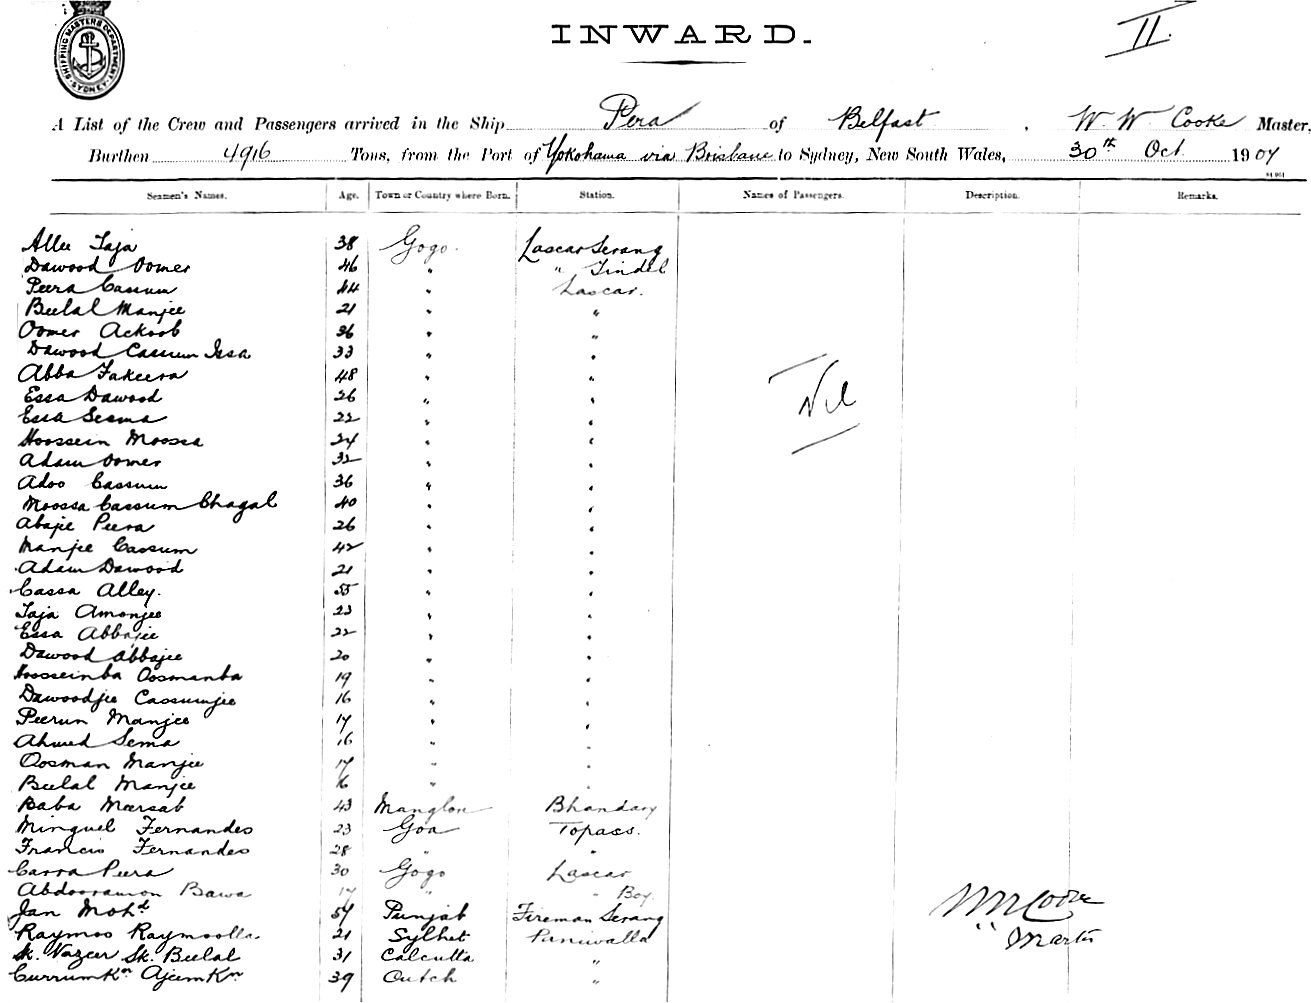 SHIPPING MASTERS DEPARTMENT SYDNEY
INWARD.
II.
A List of the Crew and Passengers arrived in the Ship Pera of Belfast, W. W. Cooke Master,
Burthen 4916 Tons, from the Port of Yokohama via Brisbane to Sydney, New South Wales, 30th Oct 1907
Seamen's Names. Age. Town or Country where Born. Station. Names of Passengers. Description. Remarks.
Allee Taja 38 Gogo. Lascar Serang
Dawood Oomer 46 " " Tindel
Peera Cassum 44 " Lascar.
Beelal Manjee 21 " "
Oomer Ackoob 36 " "
Dawood Cassum Issa 33 " "
Abba Fakeera 48 " "
Essa Dawood 26 " "
Essa Seema 22 " "
Hoossein Moosa 24 " "
Adam Oomer 32 " "
Adoo Cassum 36 " "
Moossa Cassum Chagal 40 " "
Abajee Peera 26 " "
Manjee Cassum 42 " "
Adam Dawood 21 " "
Cassa Alley. 55 " "
Taja Amonjee 23 " "
Essa Abbajee 22 " "
Dawood Abbajee 20 " "
Hoosseinba Oosmanba 19 " "
Dawoodjee Cassumjee 16 " "
Peerun Manjee 17 " "
Ahmed Sema 16 " "
Oosman Manjee 17 " "
Beelal Manjee 16 " "
Baba Meersab 43 Manglore Bhandary
Minguel Fernandes 23 Goa Topass.
Francis Fernandes 28 " "
Carra Peera 30 Gogo Lascar
Abdooramon Bawa 17 " " Boy
Jan Mohd 57 Punjab Fireman Serang
Raymoo Raymoolla. 21 Sylhet Paniwalla
Sk. Nazeer Sk. Beelal 31 Calcutta "
Currum Kn Ajum Kn 39 Cutch "
Nil
W W Cooke
" Master